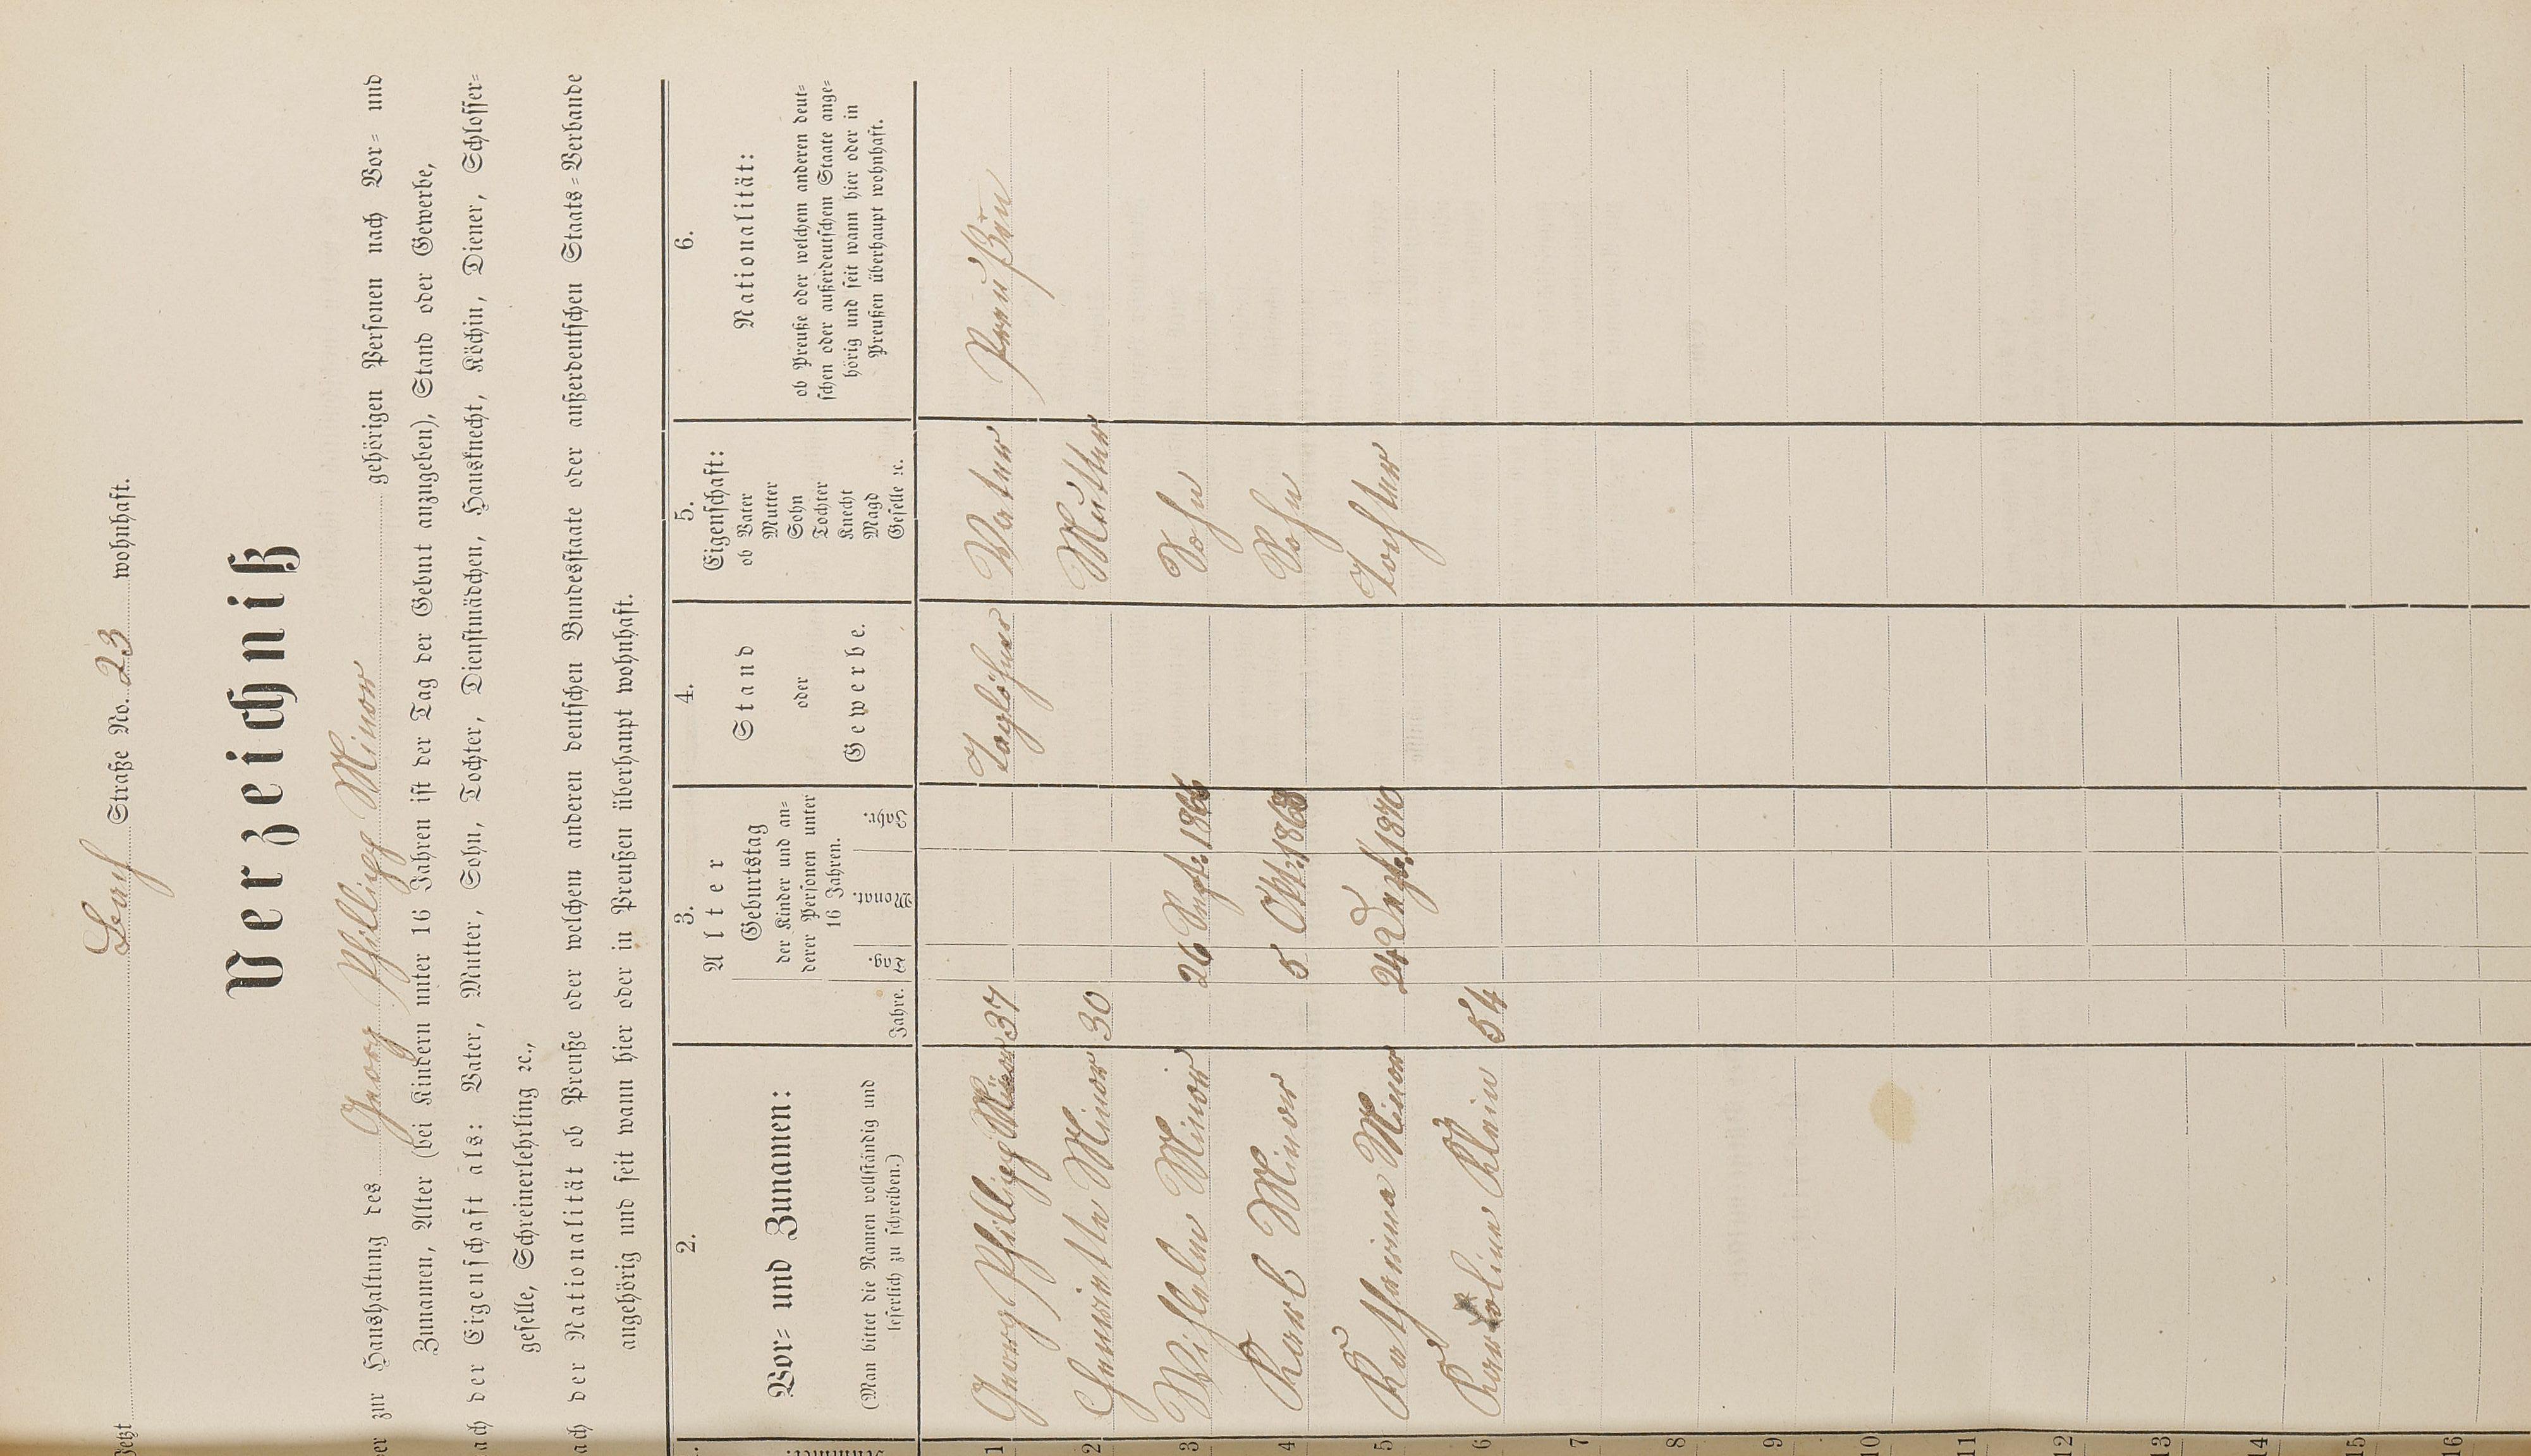 Jetzt Bach Straße No. 23 wohnhaft.
Verzeichniß
der zur Haushaltung des Georg Phillipp Minor gehörigen Personen nach Vor= und
Zunamen, Alter (bei Kindern unter 16 Jahren ist der Tag der Geburt anzugeben), Stand oder Gewerbe,
nach der Eigenschaft als: Vater, Mutter, Sohn, Tochter, Dienstmädchen, Hausknecht, Köchin, Diener, Schlosser=
geselle, Schreinerlehrling ꝛc.,
nach der Nationalität ob Preuße oder welchem anderen deutschen Bundesstaate oder außerdeutschen Staats=Verbande
angehörig und seit wann hier oder in Preußen überhaupt wohnhaft.
2.
Vor= und Zunamen:
(Man bittet die Namen vollständig und
leserlich zu schreiben.)
3.
Alter
Geburtstag
der Kinder und an=
derer Personen unter
16 Jahren.
Jahre. Tag. Monat. Jahr.
4.
Stand
oder
Gewerbe.
5.
Eigenschaft:
ob Vater
Mutter
Sohn
Tochter
Knecht
Magd
Geselle ꝛc.
6.
Nationalität:
ob Preuße oder welchem anderen deut=
schen oder außerdeutschem Staate ange=
hörig und seit wann hier oder in
Preußen überhaupt wohnhaft.
1 Georg Phillipp Minor 37 Taglöhner Vater Preußen
2 Henriette Minor 30 Mutter
3 Wihlelm Minor 26 1866 Sohn
4 Karl Minor 5 Okt. 1868 Sohn
5 Katharina Minor 24 Dez. 1870 Tochter
6 Karoline Klein 54
7
8
9
10
11
12
13
14
15
16